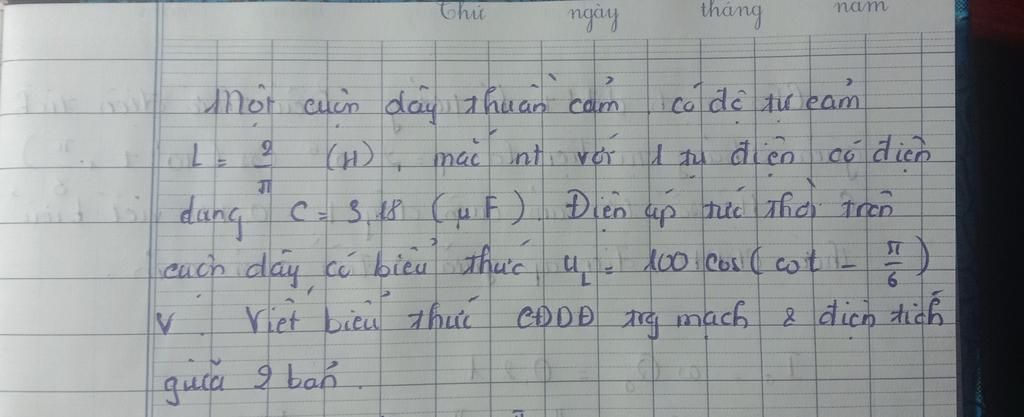 Thứ ngày tháng năm
Một cuộn dây thuần cảm có độ tự cảm
L = 2/π (H), mắc nt với 1 tụ điện có điện
dung C = 3,18 (μF). Điện áp tức thời trên
cuộn dây có biểu thức u_L = 100 cos(ωt - π/6)
V. Viết biểu thức CĐDĐ trg mạch & điện tích
giữa 2 bản.